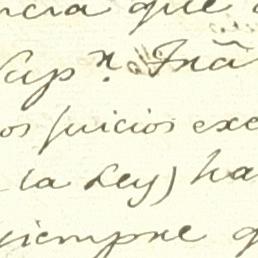 ncia que
Cap.n Fnã
os juicios exe
la Ley) ha
siempre q